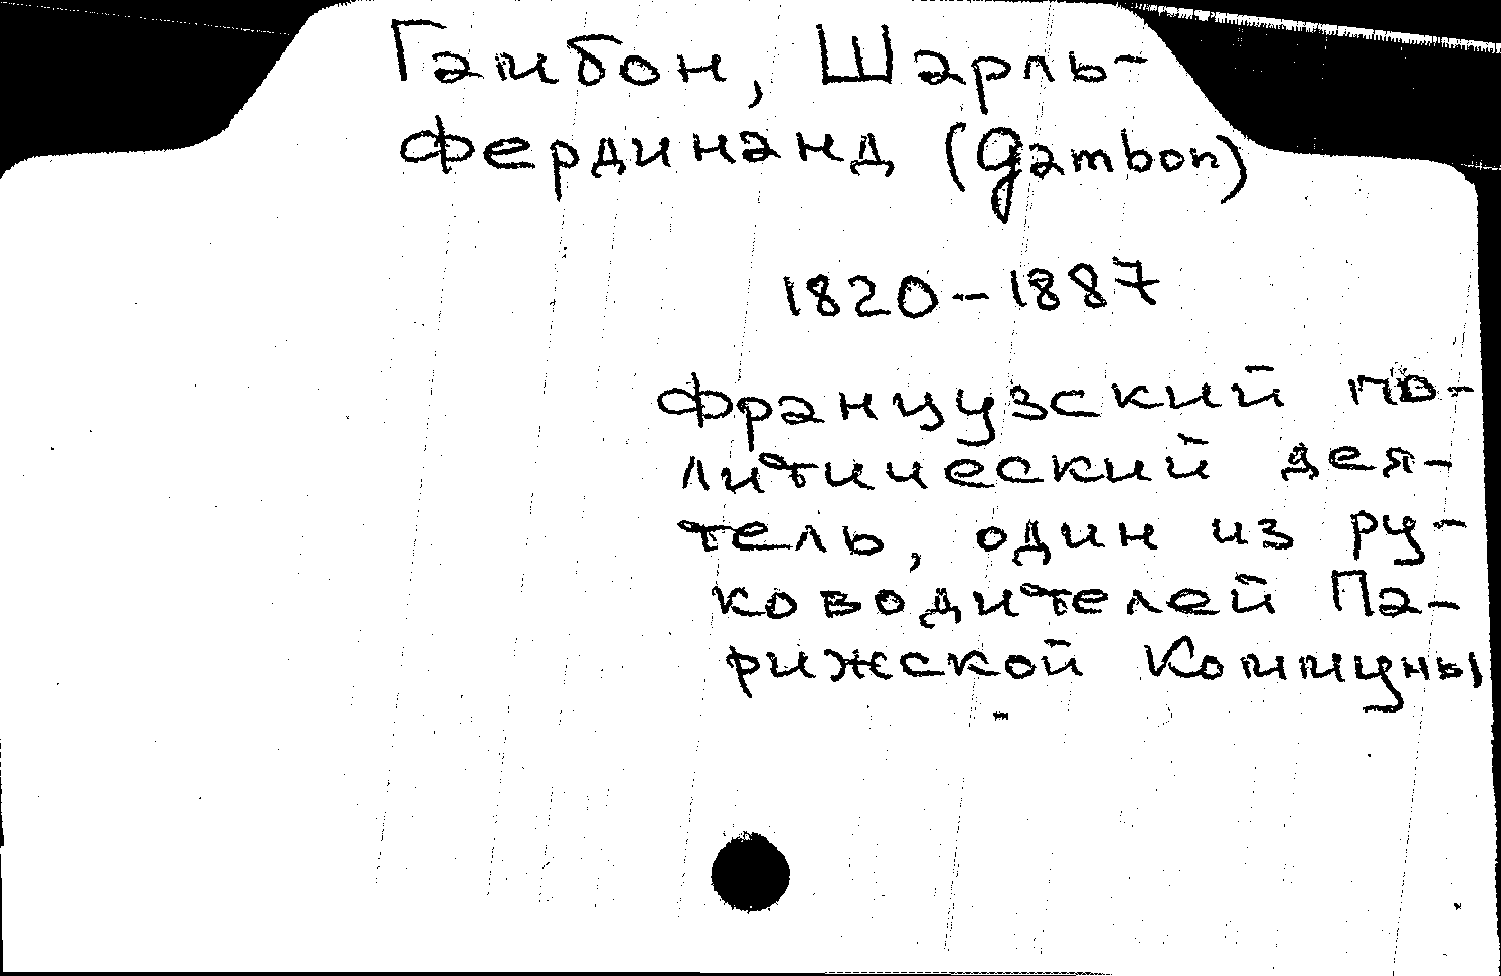 Гамбон, Шарль-
Фердинанд (Gambon)
1820-1887
французский по-
литический дея-
тель, один из ру-
ководителей Па-
рижской Коммуны